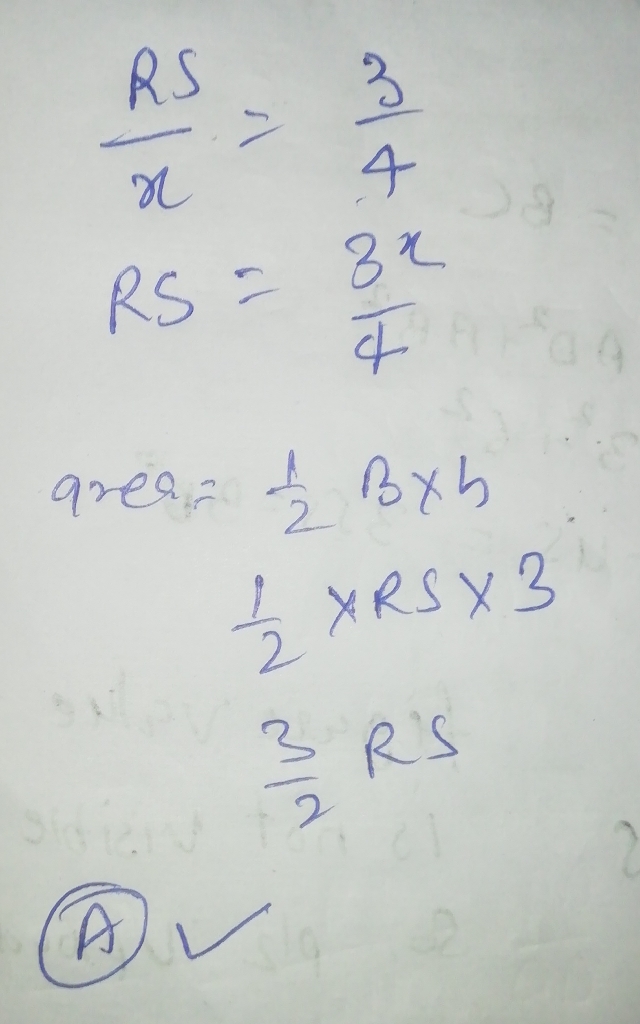 RS/x = 3/4
RS = 3x/4
area = 1/2 B x h
1/2 x RS x 3
3/2 RS
A ✓